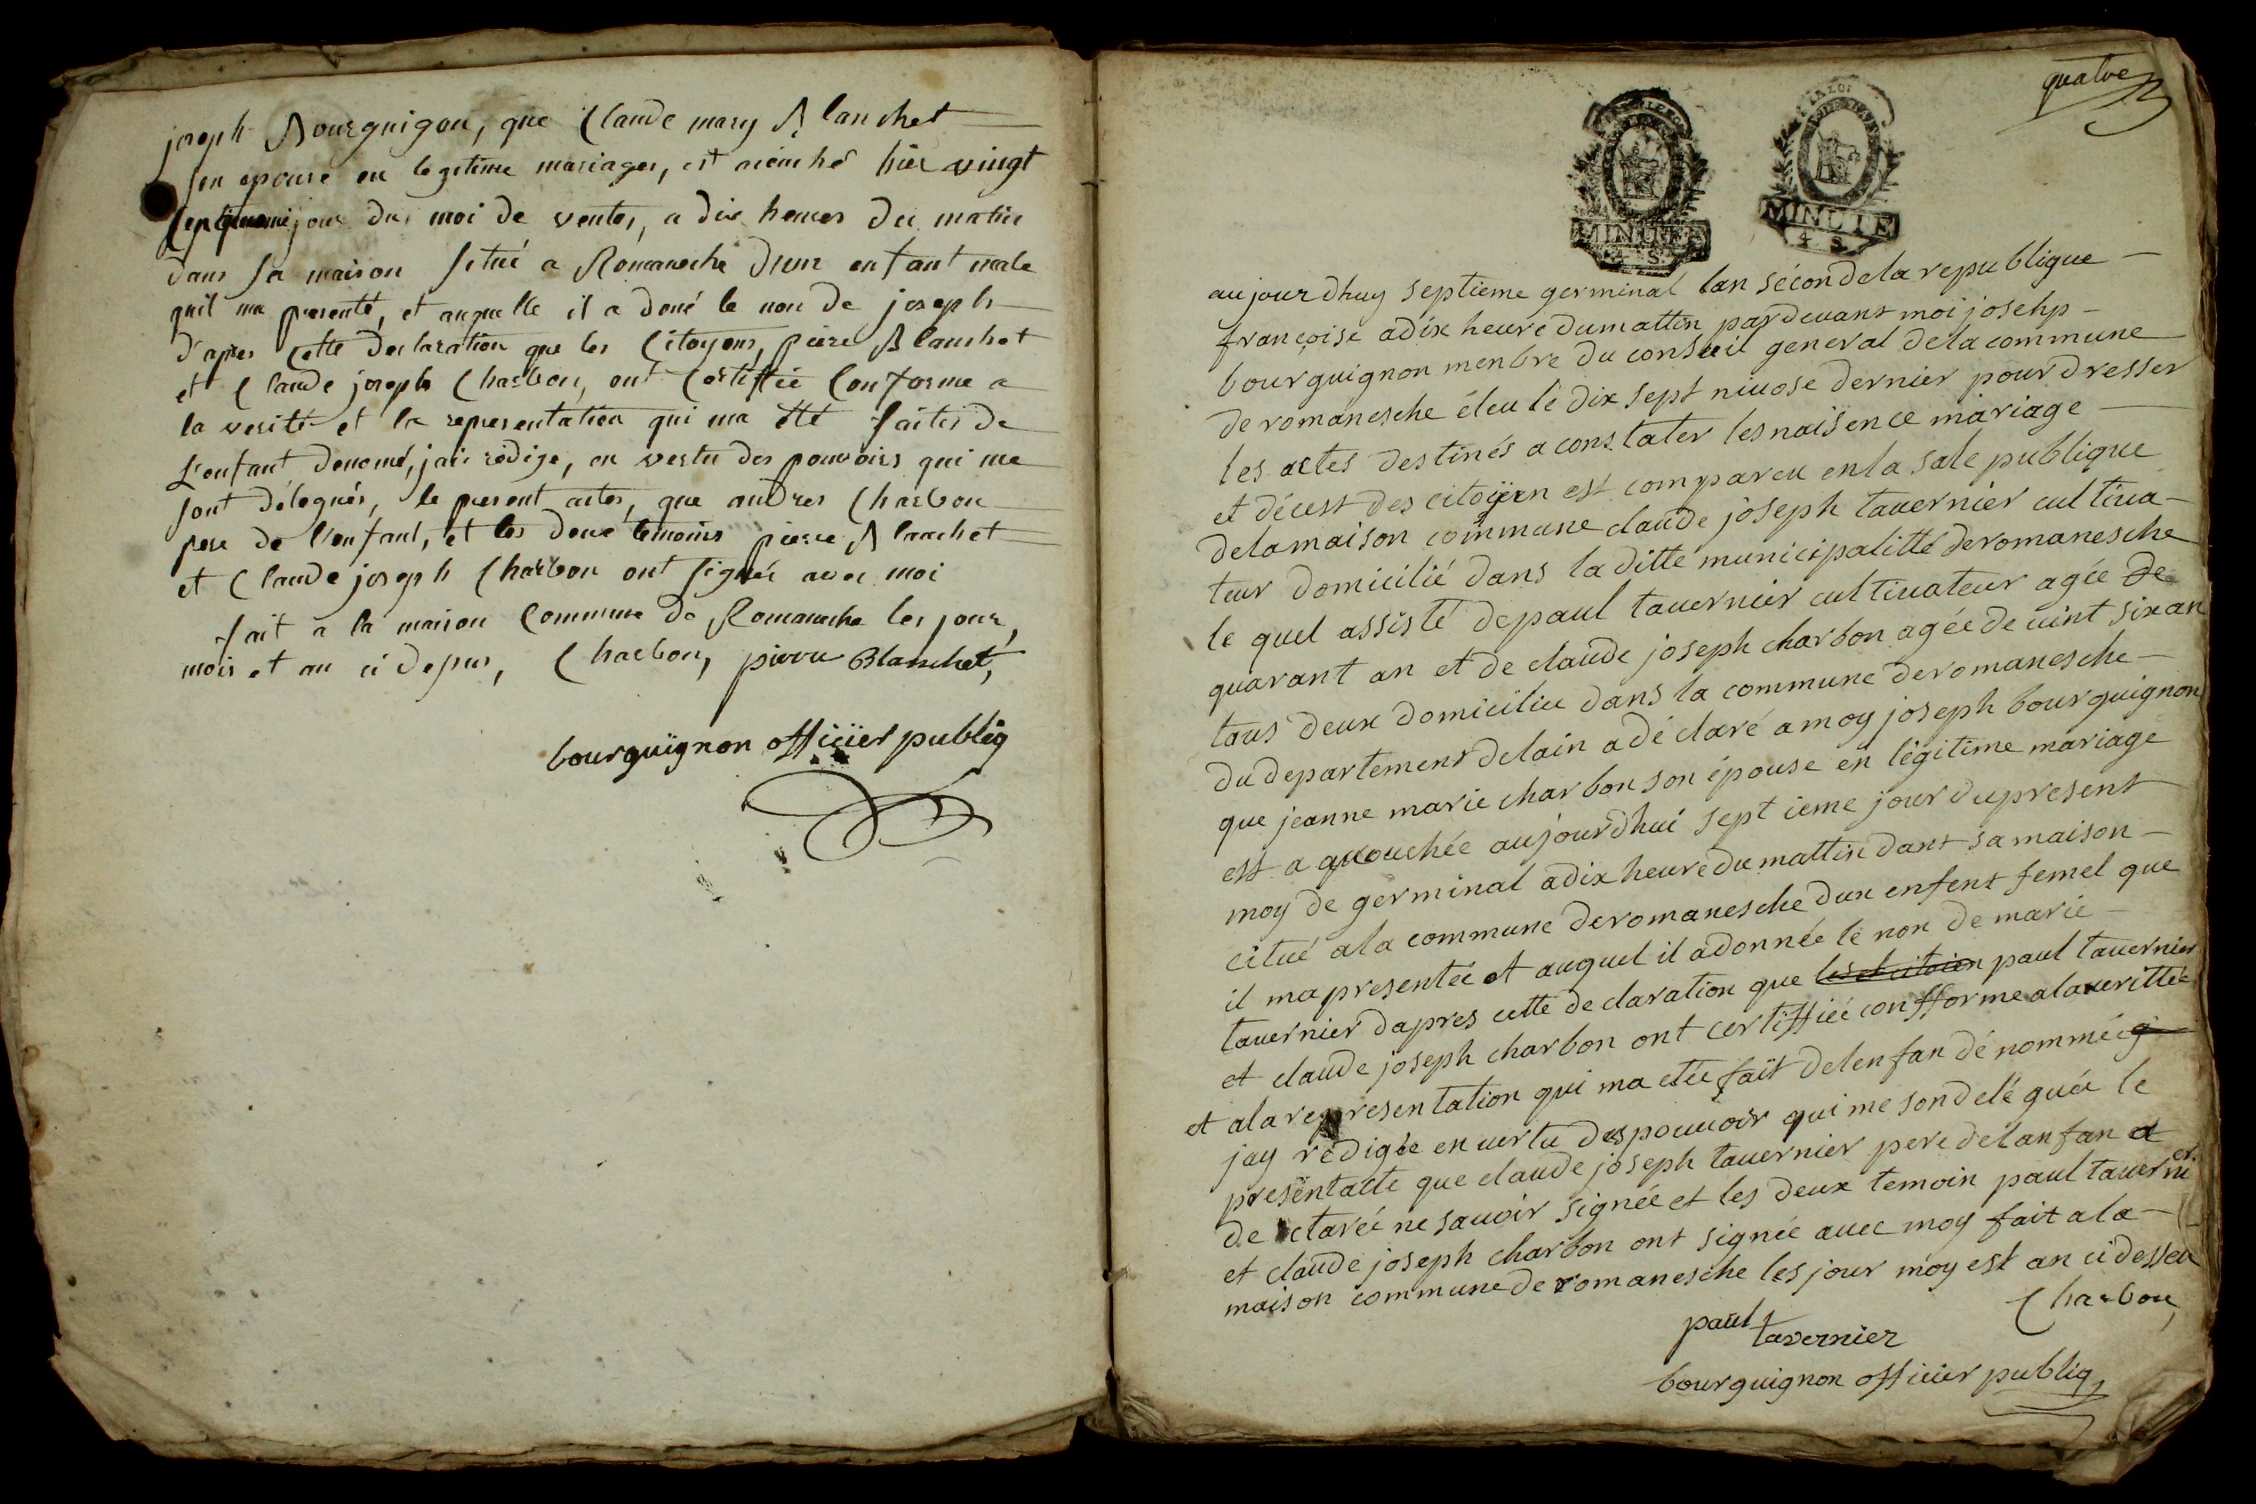 joseph Bourguignon, que Claude mary Blanchet
son epouse en legitime mariages, est acouché hier vingt
septiememe jour du moi de ventos, a dix heures du matin
dans sa maison situé a Romaneche d'un enfant male
quil ma presenté, et auquelle il a doné le non de joseph
d'apres cette declaration que les Citoyens, pierre Blanchet
et Claude joseph Charbon, ont Certiffié Conforme a
la verité et la representation qui ma été faites de
L'enfant denomé, jai rédige, en vertu des pouvoirs qui me
sont délegués, le present actes, que andres Charbon
pere de l'enfant, et les deux temoins pierre Blanchet
et Claude joseph Charbon ont signés avec moi
fait a la maison Commune de Romaneche les jour,
mois et an ci depus, Charbon, pierre Blanchet,
bourguignon officier publiq
quatre
MINUTE
4. S.
MINUTE
4. S.
aujourdhuy septieme germinal lan sécond de la republique
françoise a dix heure du mattin pardevant moi josehp
bourguignon menbre du conseil general de la commune
de romanesche éleu le dix sept nivose dernier pour dresser
les actes destinés a constater les naisence mariage
et décest des citoyen est compareu en la sale publique
de la maison commune claude joseph tavernier cultiva-
teur domicilié dans la ditte municipalitté de romanesche
le quel assisté de paul tavernier cultivateur agée de
quarant an et de claude joseph charbon agée de vint six an
tous deux domiciliee dans la commune de romanesche
du departement de lain a dé claré a moy joseph bourguignon
que jeanne marie charbon son épouse en légitime mariage
est a quouchée aujourdhui sept ieme jour du present
moy de germinal a dix heure du mattin dant sa maison
citué a la commune de romanesche dun enfent femel que
il ma presentée et auquel il a donnée le non de marie
tavernier dapres cette de claration que les et citoien paul tavernier
et claude joseph charbon ont certiffiée confforme a la verittée
et a la representation qui ma etée fait de lenfan dé nommée q
jay rédigée en vertu des pouvoir qui me son delé guée le
present acte que claude joseph tavernier pere de lanfan a
de clarée ne savoir signée et les deux temoin paul tavernier
et claude joseph charbon ont signée avec moy fait a la
maison commune de romanesche les jour moy est an ci desseu
paul tavernier
Charbon,
bourguignon officier publiq